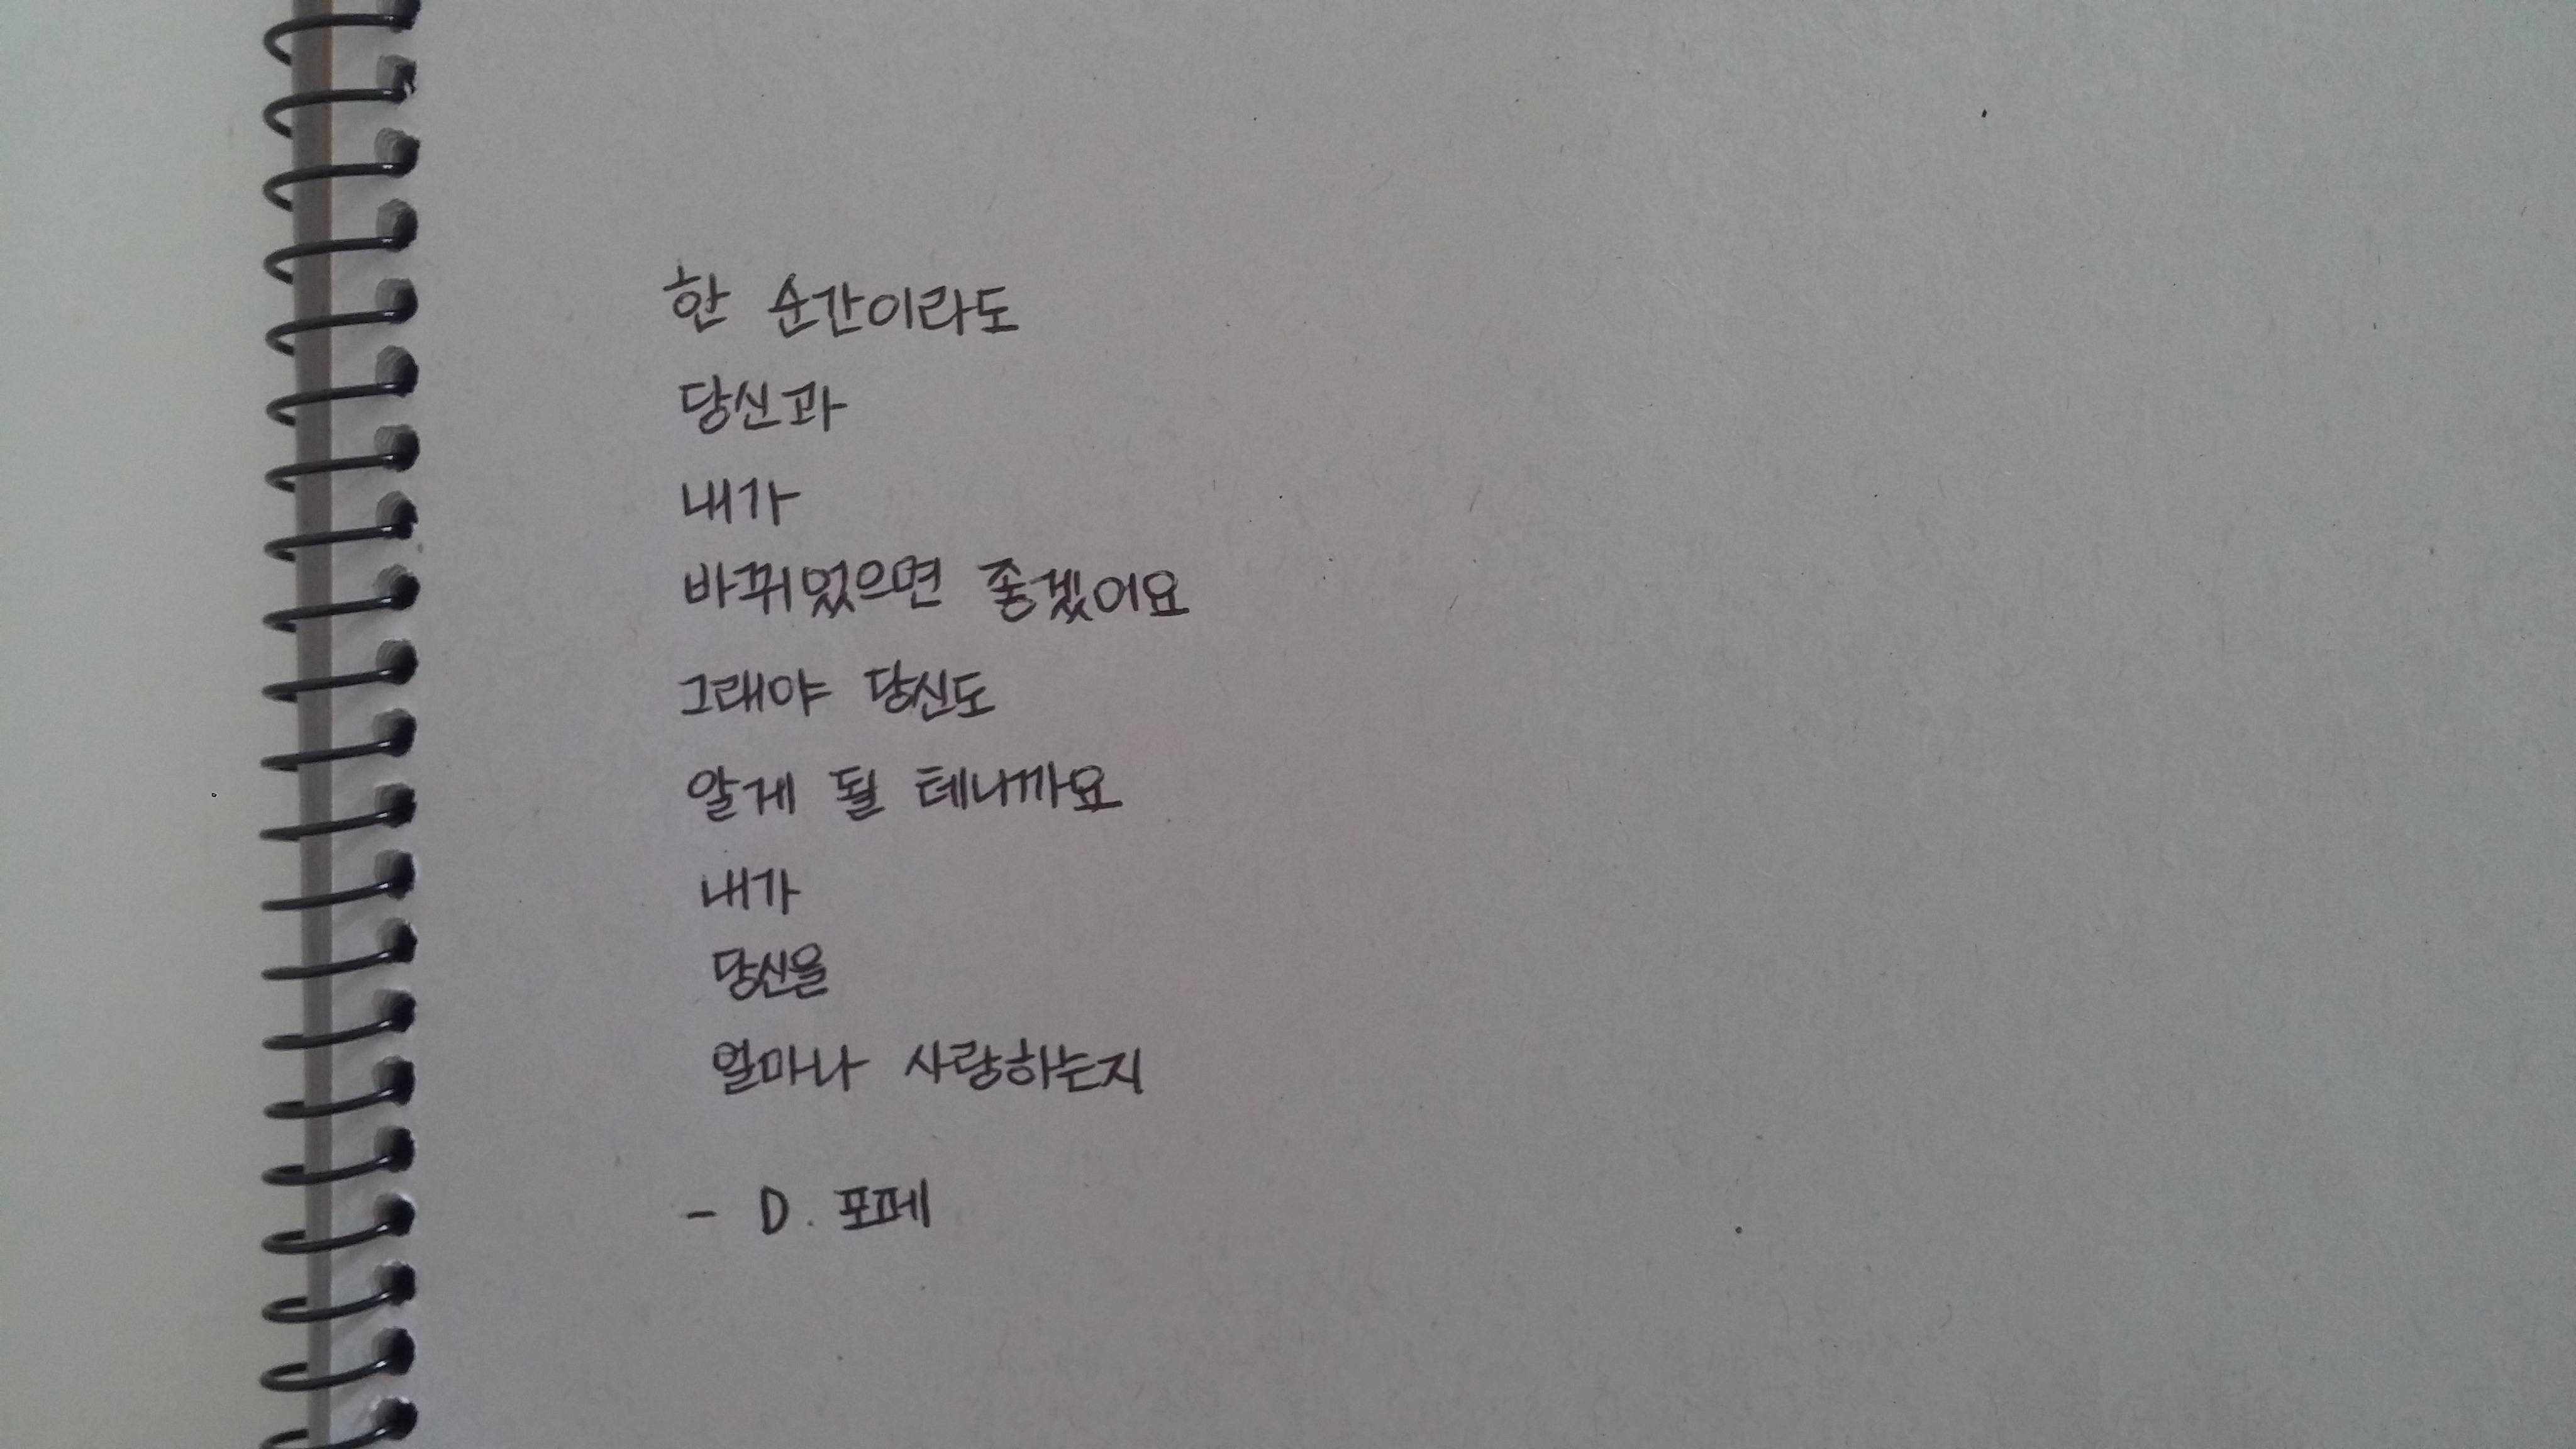 한 순간이라도
당신과
내가
바뀌었으면 좋겠어요
그래야 당신도
알게 될 테니까요
내가
당신을
얼마나 사랑하는지
- D. 포페